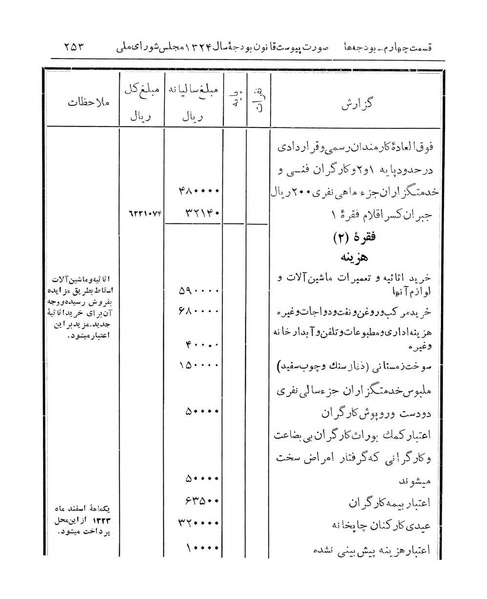 قسمت چهارم ـ بودجه‌ها صورت پیوست قانون بودجهٔ سال ۱۳۲۴ مجلس شورای ملی ۲۵۳
گزارش نفرات پایه مبلغ سالیانه ریال مبلغ کل ریال ملاحظات
فوق‌العادهٔ کارمندان رسمی و قراردادی
در حدود پایه ۱ و ۲ و کارگران فنی و
خدمتگزاران جزء ماهی نفری ۲۰۰ ریال ۴۸۰۰۰۰
جبران کسر اقلام فقرهٔ ۱ ۳۲۱۴۰ ۶۲۲۱۰۷۴
فقرهٔ (۲)
هزینه
خرید اثاثیه و تعمیرات ماشین‌آلات و
لوازم آنها ۵۹۰۰۰۰
خرید مرکب و روغن و نفت و دواجات و غیره ۶۸۰۰۰۰
هزینه اداری و مطبوعات و تلفن و آبدارخانه
و غیره ۴۰۰۰۰
سوخت زمستانی (ذغال سنگ و چوب سفید) ۱۵۰۰۰۰
ملبوس خدمتگزاران جزء سالی نفری
دو دست و روپوش کارگران ۵۰۰۰۰
اعتبار کمک بوراث کارگران بی بضاعت
و کارگرانی که گرفتار امراض سخت
میشوند ۵۰۰۰۰
اعتبار بیمه کارگران ۶۳۵۰۰
عیدی کارکنان چاپخانه ۳۲۰۰۰۰
اعتبار هزینه پیش بینی نشده ۱۰۰۰۰
اثاثیه و ماشین آلات
اسقاط بطریق مزایده
بفروش رسیده و وجه
آن برای خرید اثاثیهٔ
جدید مزید بر این
اعتبار میشود.
یکماهۀ اسفند ماه
۱۳۲۳ از این محل
پرداخت میشود.